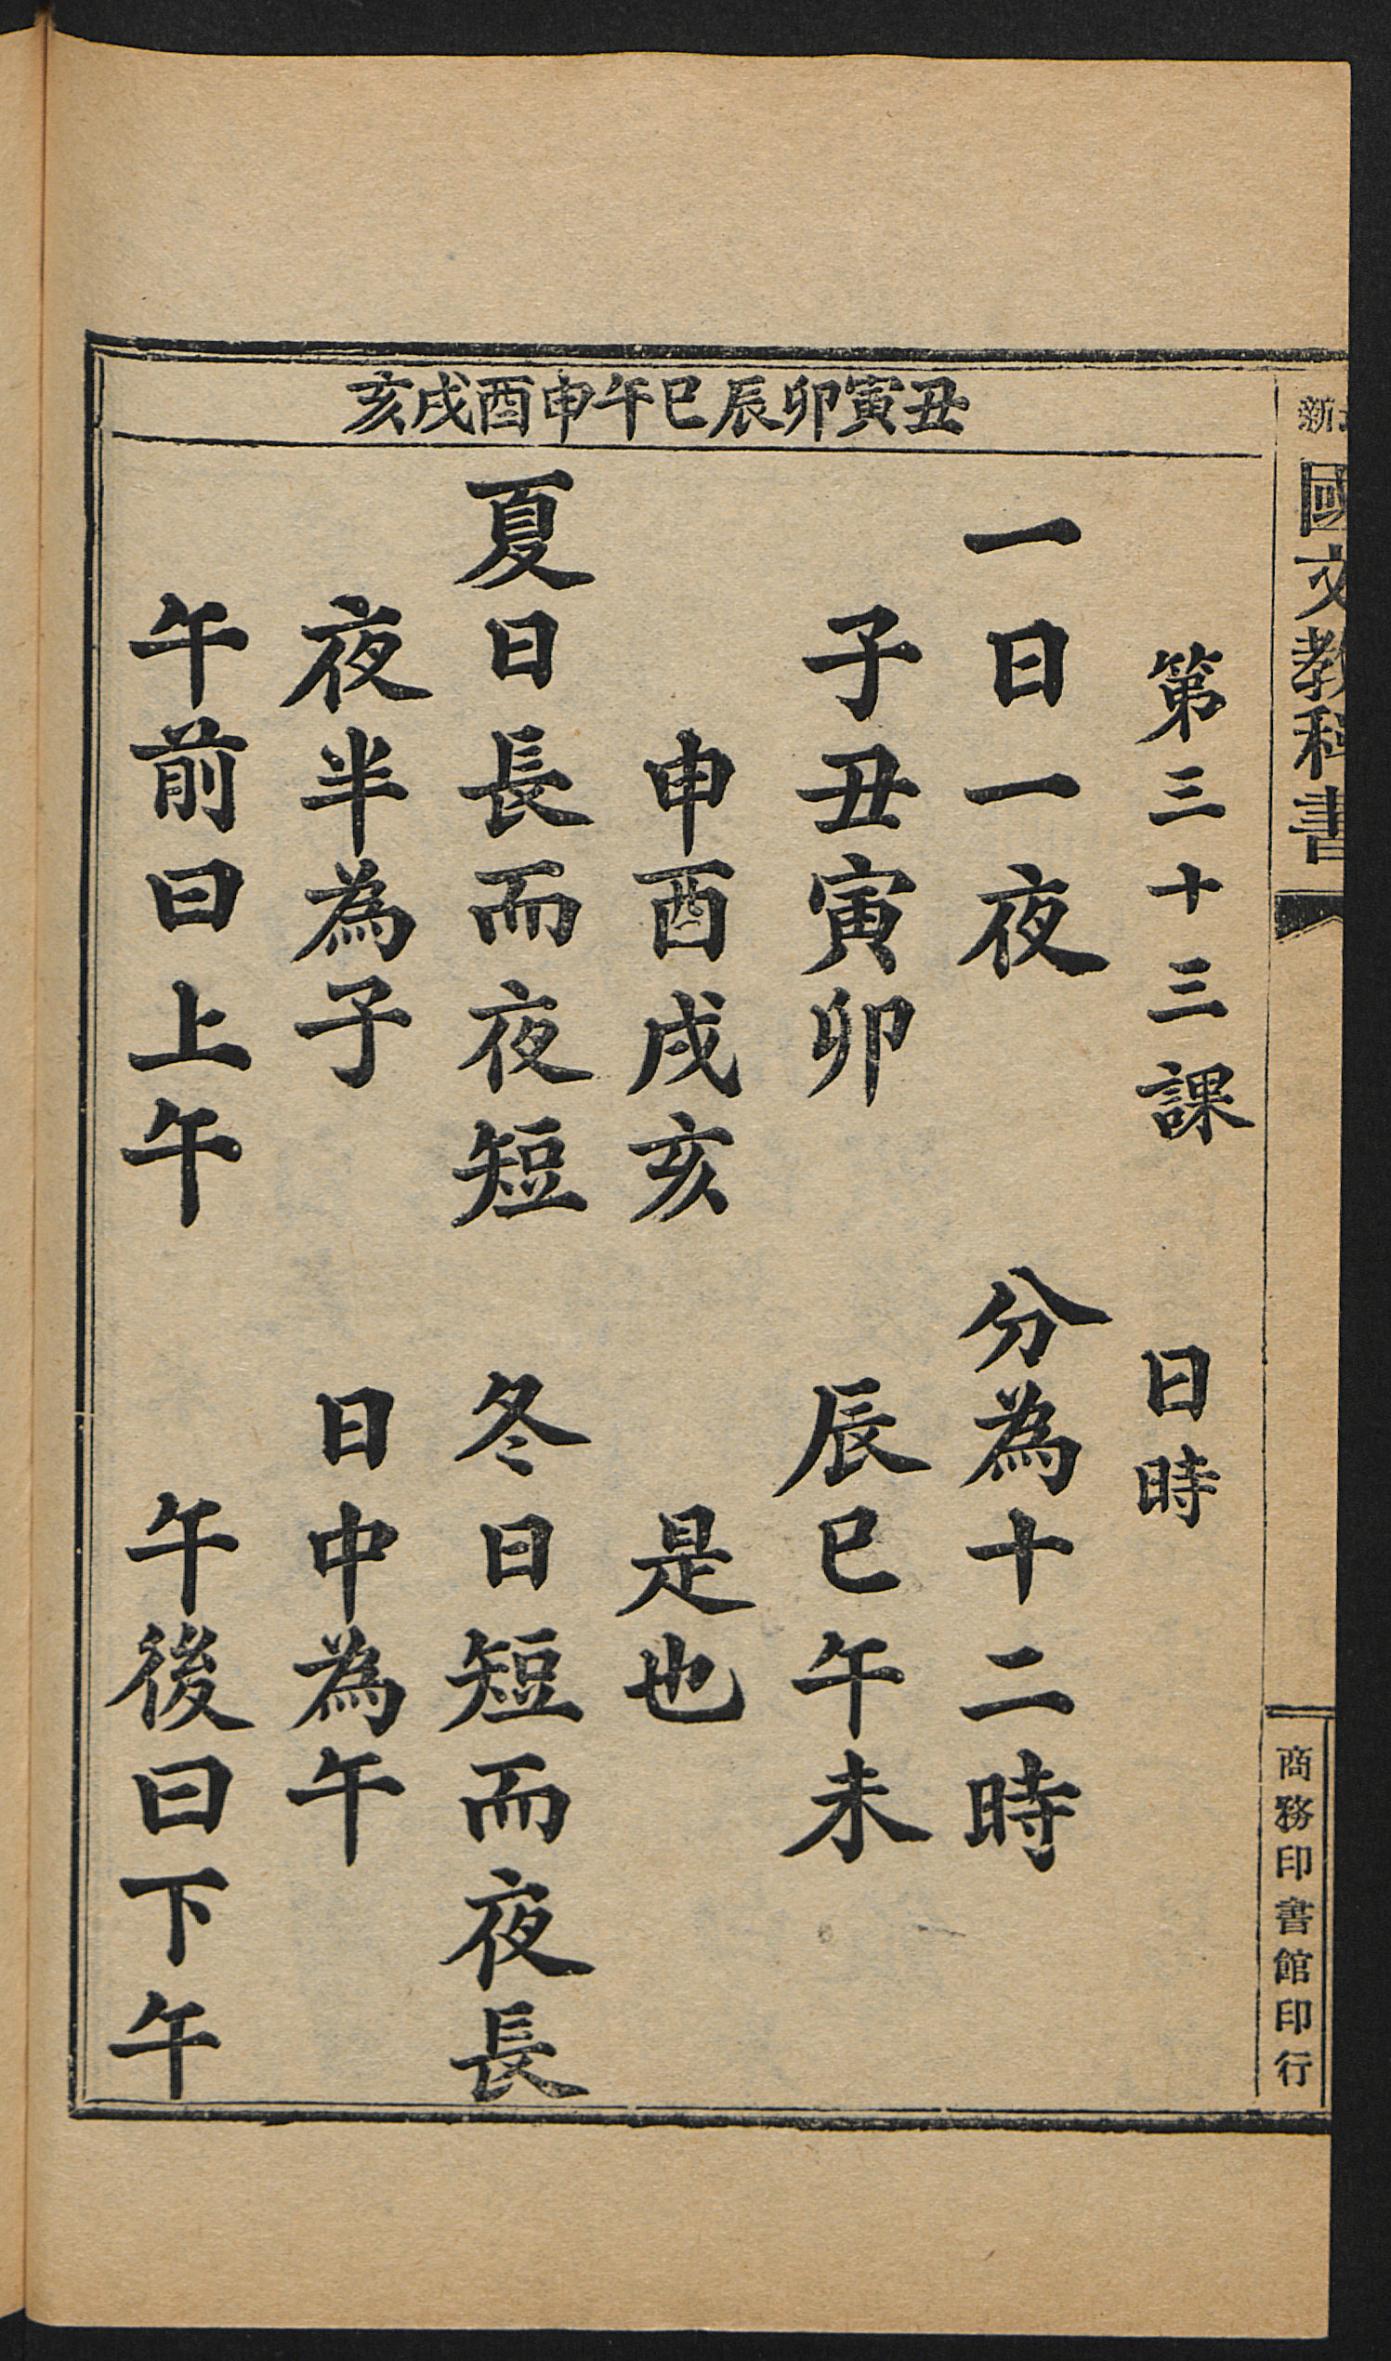 新
國文教科書
第三十三課　日時
丑寅卯辰巳午申酉戌亥
一日一夜　分為十二時
子丑寅卯　辰巳午未
申酉戌亥　是也
夏日長而夜短　冬日短而夜長
夜半為子　日中為午
午前曰上午　午後曰下午
商務印書館印行